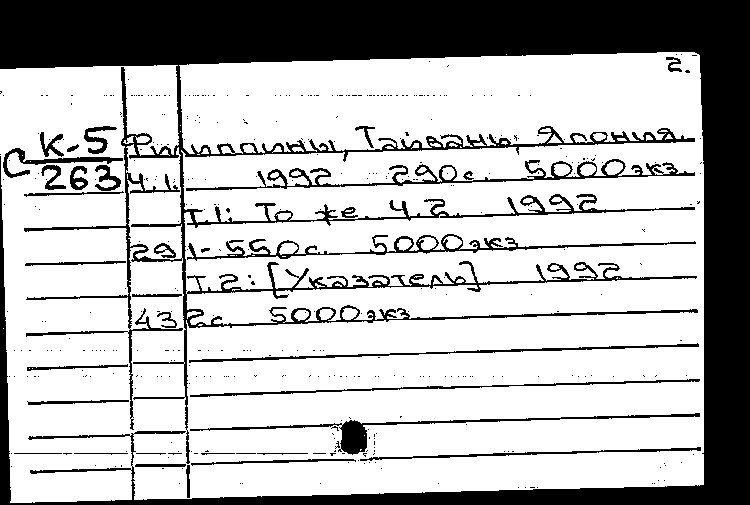 2.
С К-5
263
Филиппины, Тайвань, Япония.
Ч.1. 1992 290с. 5000экз.
Т.1: То же. Ч.2. 1992
291-550с. 5000экз
Т.2: [Указатель] 1992
432с. 5000экз